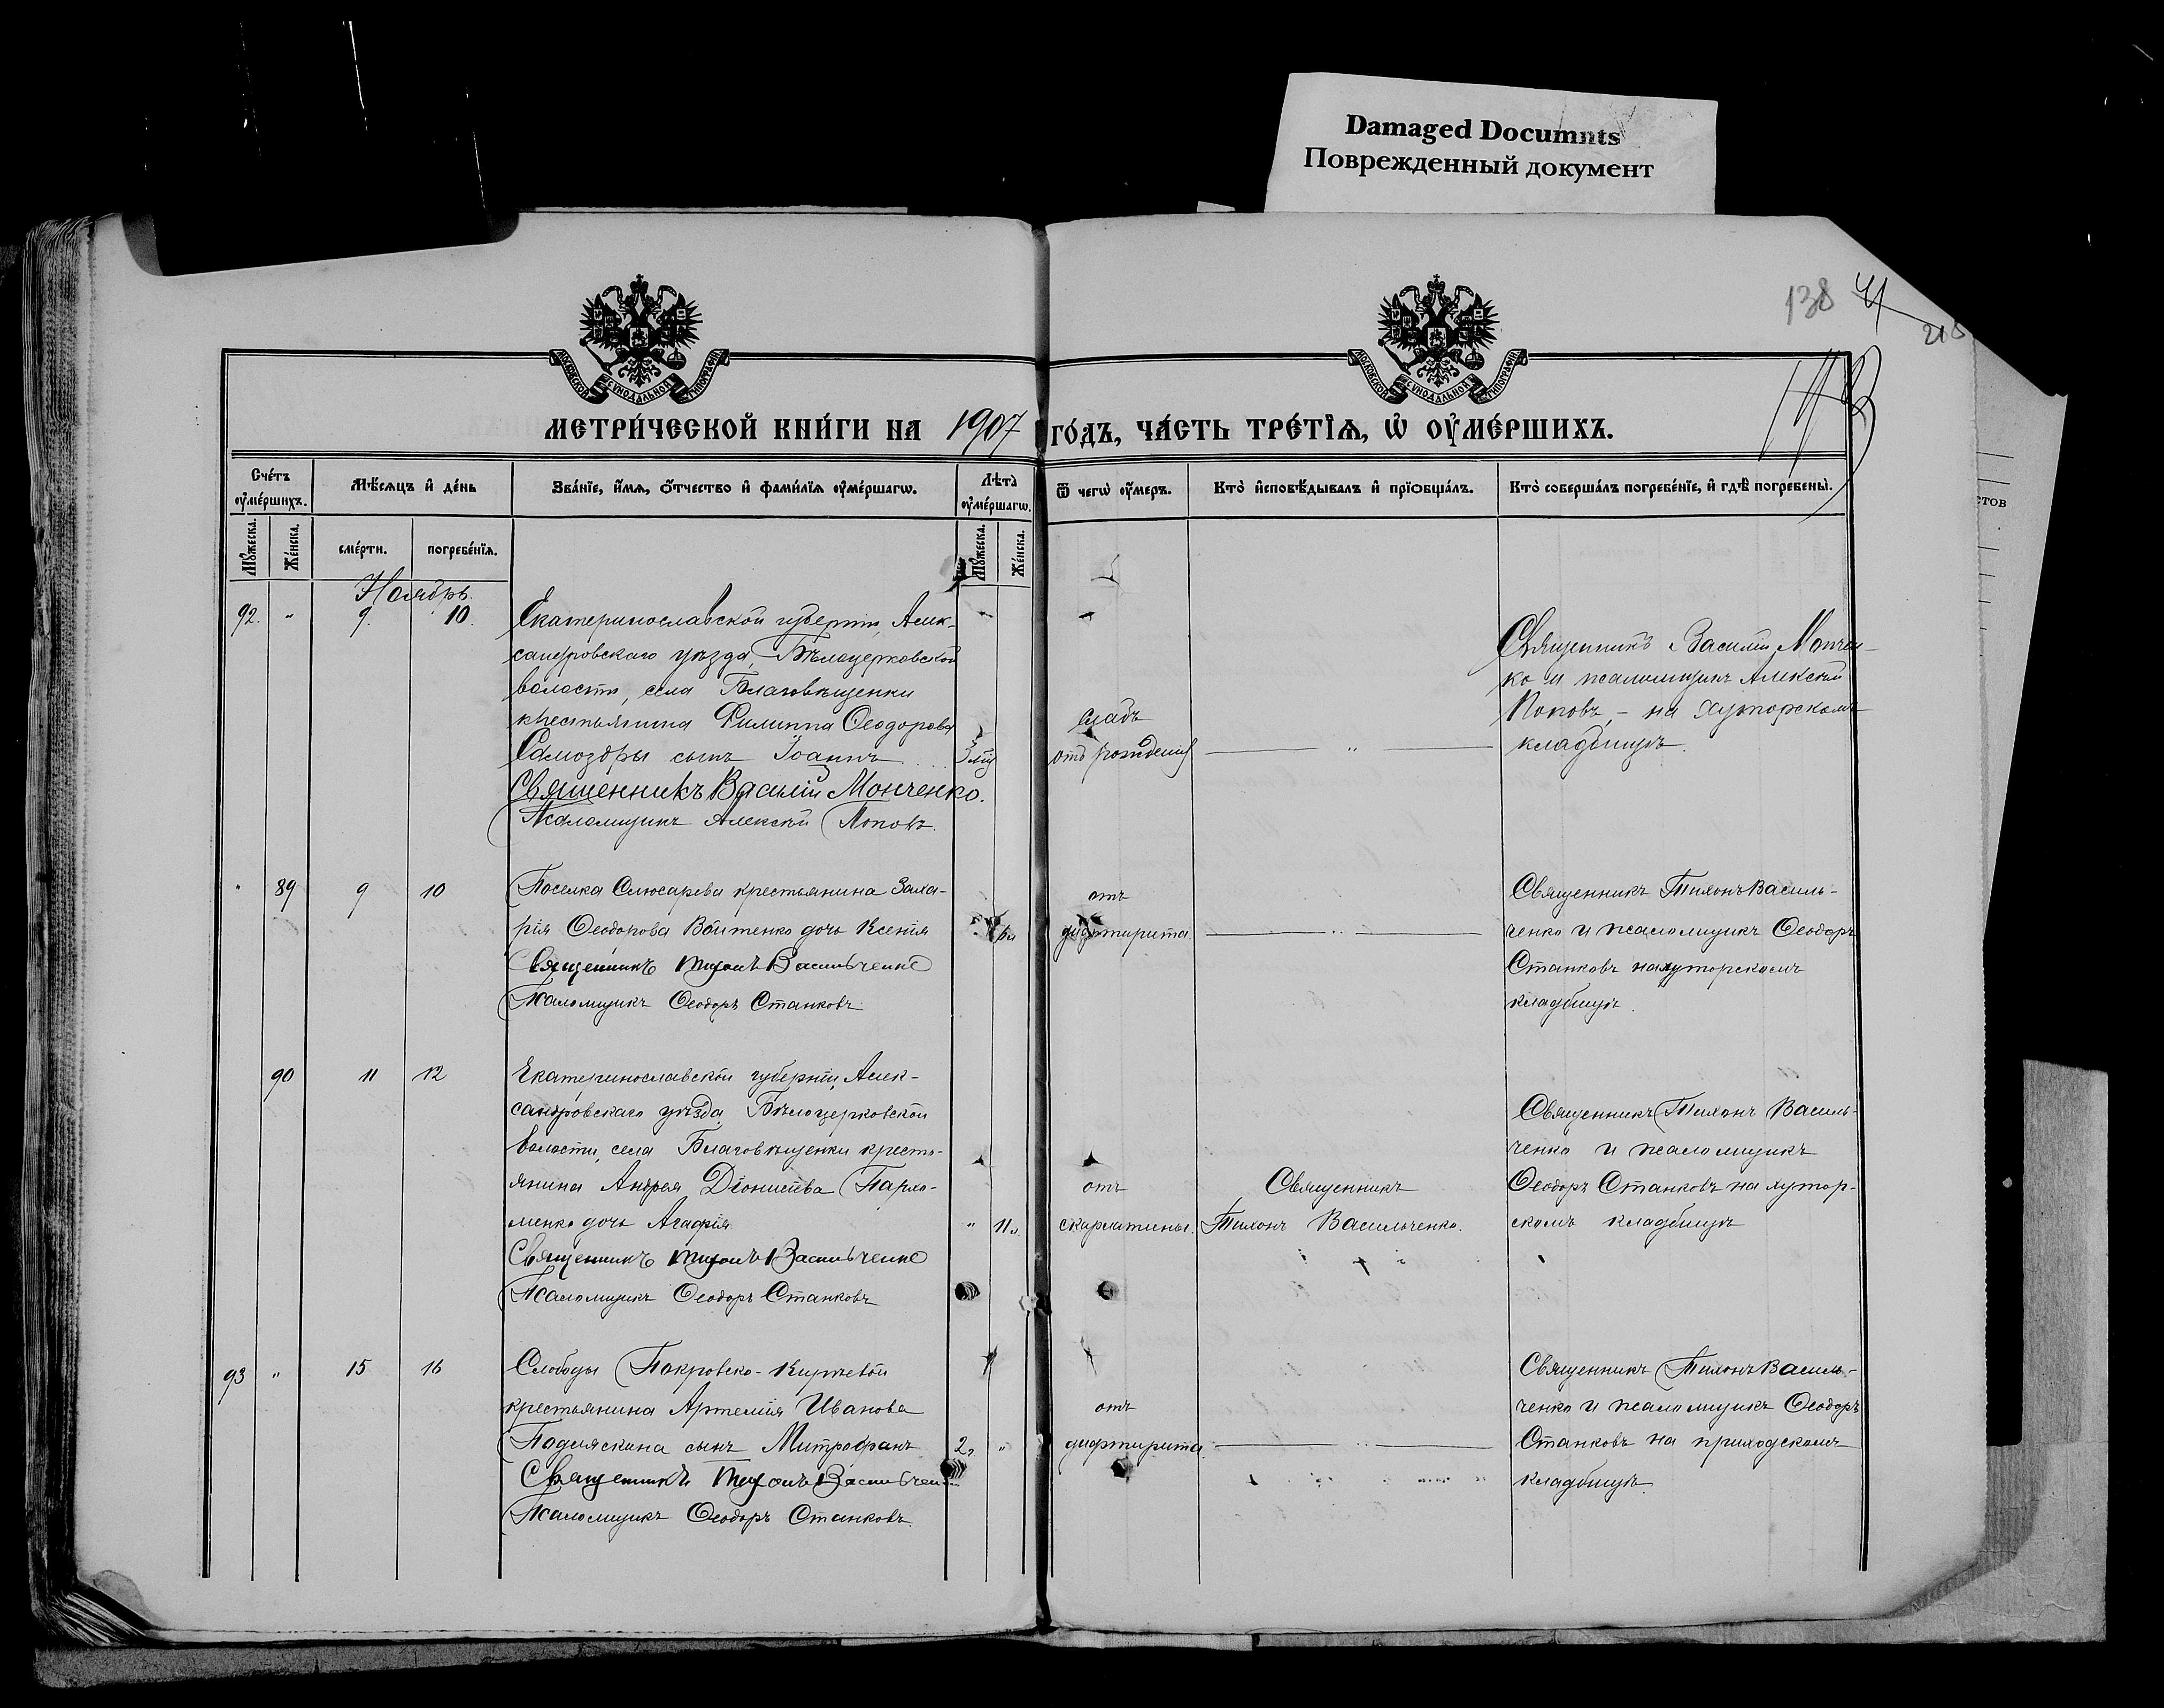 Damaged Documnts
Поврежденный документ
138
218
МОСКОВСКОЙ СѴНОДАЛЬНОЙ ТИПОГРАФІИ
МОСКОВСКОЙ СѴНОДАЛЬНОЙ ТИПОГРАФІИ
МЕТРИ́ЧЕСКОЙ КНИ́ГИ НА 1907 ГО́ДЪ, ЧА́СТЬ ТРЕ́ТІѦ, Ѡ҆ ОУ҆МЕ́РШИХЪ.
Сче́тъ оу҆ме́ршихъ.
Мѣ́сѧцъ и҆ де́нь
Зва́нїе, и҆́мѧ, ѻ҆́тчество и҆ фами́лїѧ оу҆ме́ршагѡ.
Лѣ̀та оу҆ме́ршагѡ.
Ѿ чегѡ̀ оу҆́меръ.
Кто̀ и҆сповѣ́дывалъ и҆ прїѡбща́лъ.
Кто̀ соверша́лъ погребе́нїе, и҆ гдѣ̀ погребены̀.
Мꙋ́жеска.
Же́нска.
сме́рти.
погребе́нїѧ.
Мꙋ́жеска.
Же́нска.
стов
Ноябрь.
92. " 9. 10.
Екатеринославской губерніи, Алек-
сандровскаго уѣзда, Бѣлоцерковской
волости, села Благовѣщенки
крестьянина Филиппа Ѳеодорова
Самоздры сынъ Іоаннъ
Священникъ Василій Монченко.
Псаломщикъ Алексѣй Поповъ.
слабъ
отъ рожденія
"
Священникъ Василій Мончен-
ко и псаломщикъ Алексѣй
Поповъ, - на хуторскомъ
кладбищѣ.
" 89 9 10
Поселка Слюсарева крестьянина Заха-
рія Ѳеодорова Войтенко дочь Ксенія
Священникъ Тихонъ Васильченко
Псаломщикъ Ѳеодоръ Станковъ
отъ
дифтирита
"
Священникъ Тихонъ Василь-
ченко и псаломщикъ Ѳеодоръ
Станковъ на хуторскомъ
кладбищѣ.
90 11 12
Екатеринославской губерніи, Алек-
сандровскаго уѣзда, Бѣлоцерковской
волости, села Благовѣщенки кресть-
янина Андрея Діонисіева Пархо-
менко дочь Агафія
" 11 л.
Священникъ Тихонъ Васильченко
Псаломщикъ Ѳеодоръ Станковъ
отъ
скарлатины.
Священникъ
Тихонъ Васильченко.
Священникъ Тихонъ Василь-
ченко и псаломщикъ
Ѳеодоръ Станковъ на хутор-
скомъ кладбищѣ
93 " 15 16
Слободы Покровско-Киреевой
крестьянина Артемія Иванова
Подляскина сынъ Митрофанъ
2 "
Священникъ Тихонъ Васильченко
Псаломщикъ Ѳеодоръ Станковъ.
отъ
дифтирита
"
Священникъ Тихонъ Василь-
ченко и псаломщикъ Ѳеодоръ
Станковъ на приходскомъ
кладбищѣ.